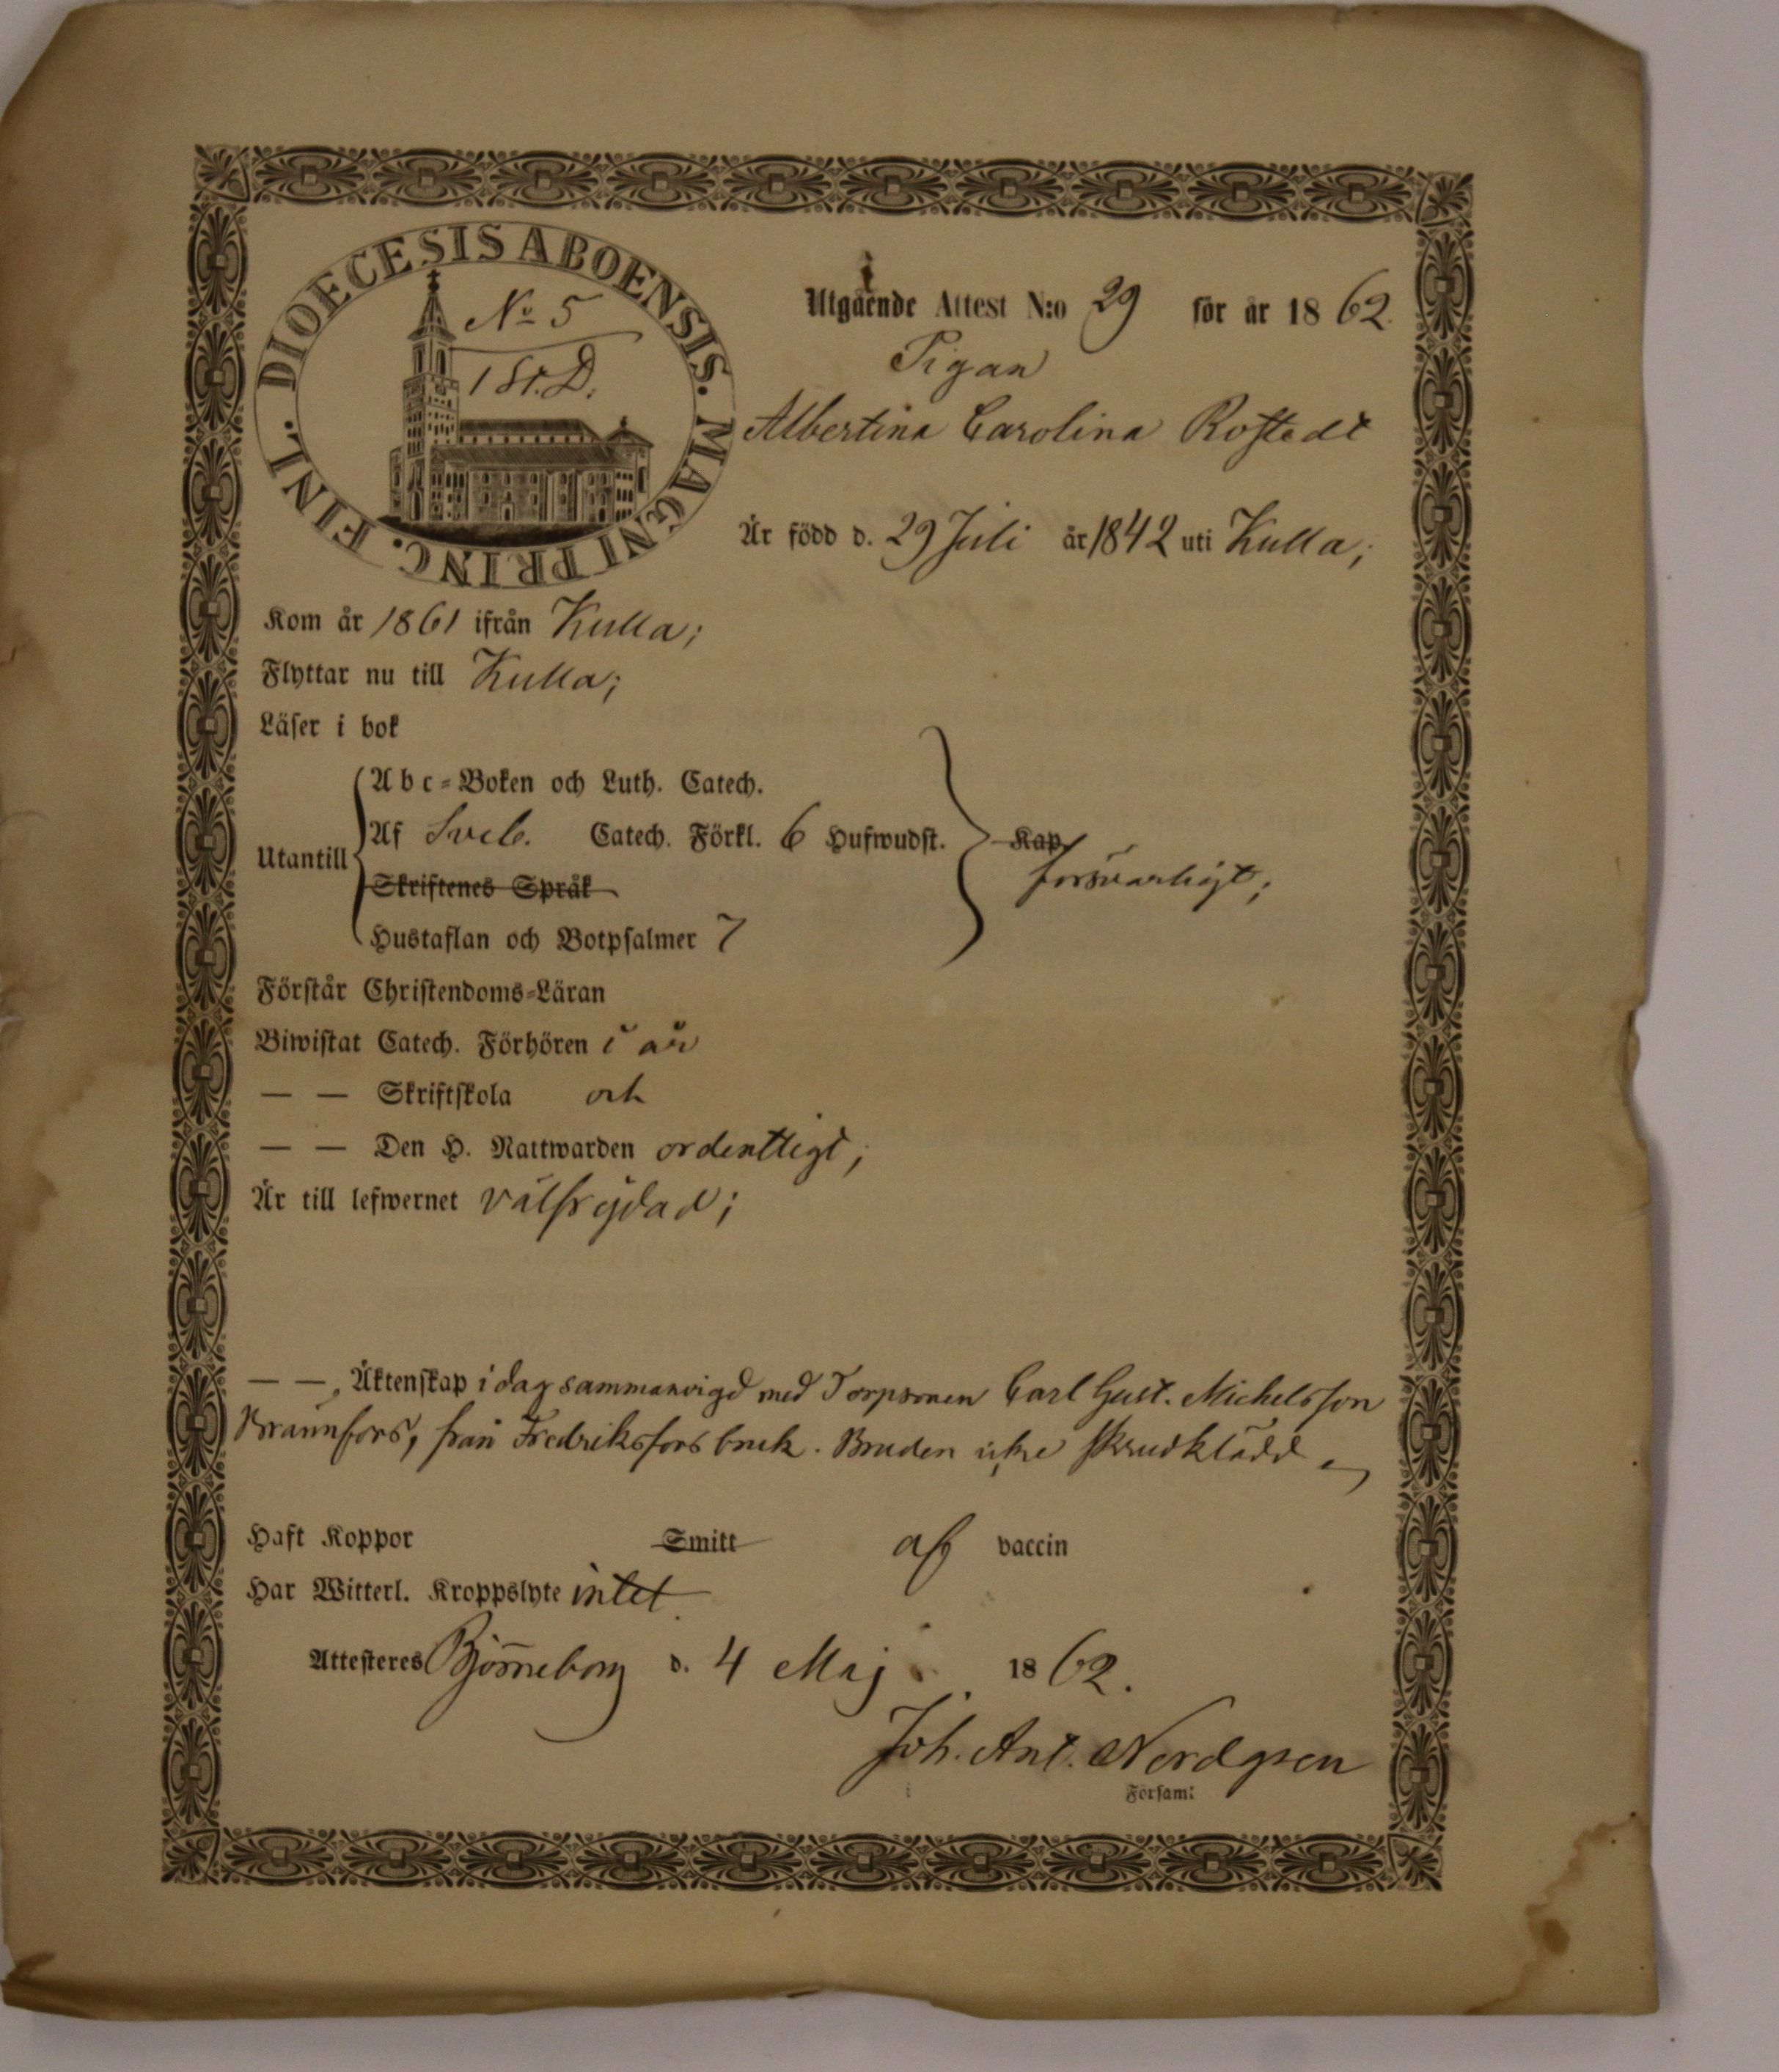 DIOECESIS ABOENSIS. MAGNI PRINC. FINL.
No 5
1 St. D.
Utgående Attest N:o 29 för år 1862.
Pigan
Albertina Carolina Rostedt
Är född d. 29 Juli år 1842 uti Kulla;
Kom år 1861 ifrån Kulla;
Flyttar nu till Kulla;
Läser i bok
Utantill
Abc-Boken och Luth. Catech.
Af Sveb. Catech. Förkl. 6 Hufwudst.
Skriftenes Språk
Hustaflan och Botpsalmer 7
Kap
försvarligt;
Förstår Christendoms-Läran
Biwistat Catech. Förhören i år
— — Skriftskola och
— — Den H. Nattwarden ordentligt;
Är till lefwernet välfrejdad;
— — Äktenskap i dag sammanvigd med Torpsonen Carl Gust. Michelsson
Brunnfors, från Fredriksfors bruk. Bruden icke skrudklädd
Haft Koppor Smitt af vaccin
Har Witterl. Kroppslyte intet.
Attesteres Björneborg d. 4 Maj 1862.
Joh. Ant. Nordgren
Församl